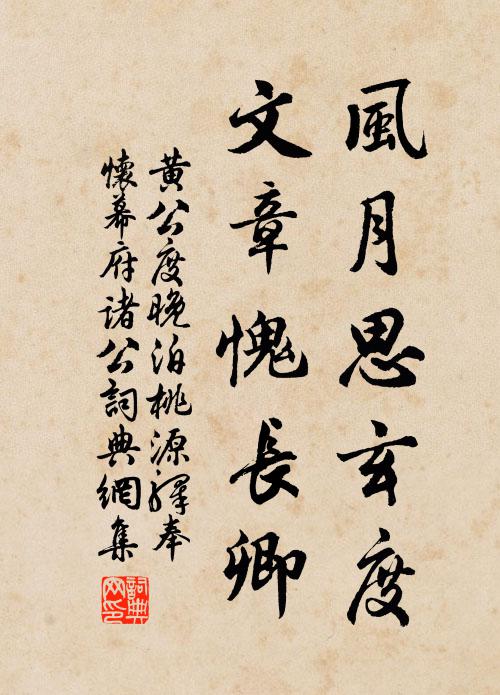 風月思玄度
文章愧長卿
黃公度晚泊桃源驛奉
懷幕府諸公詞典網集
詞典
网印